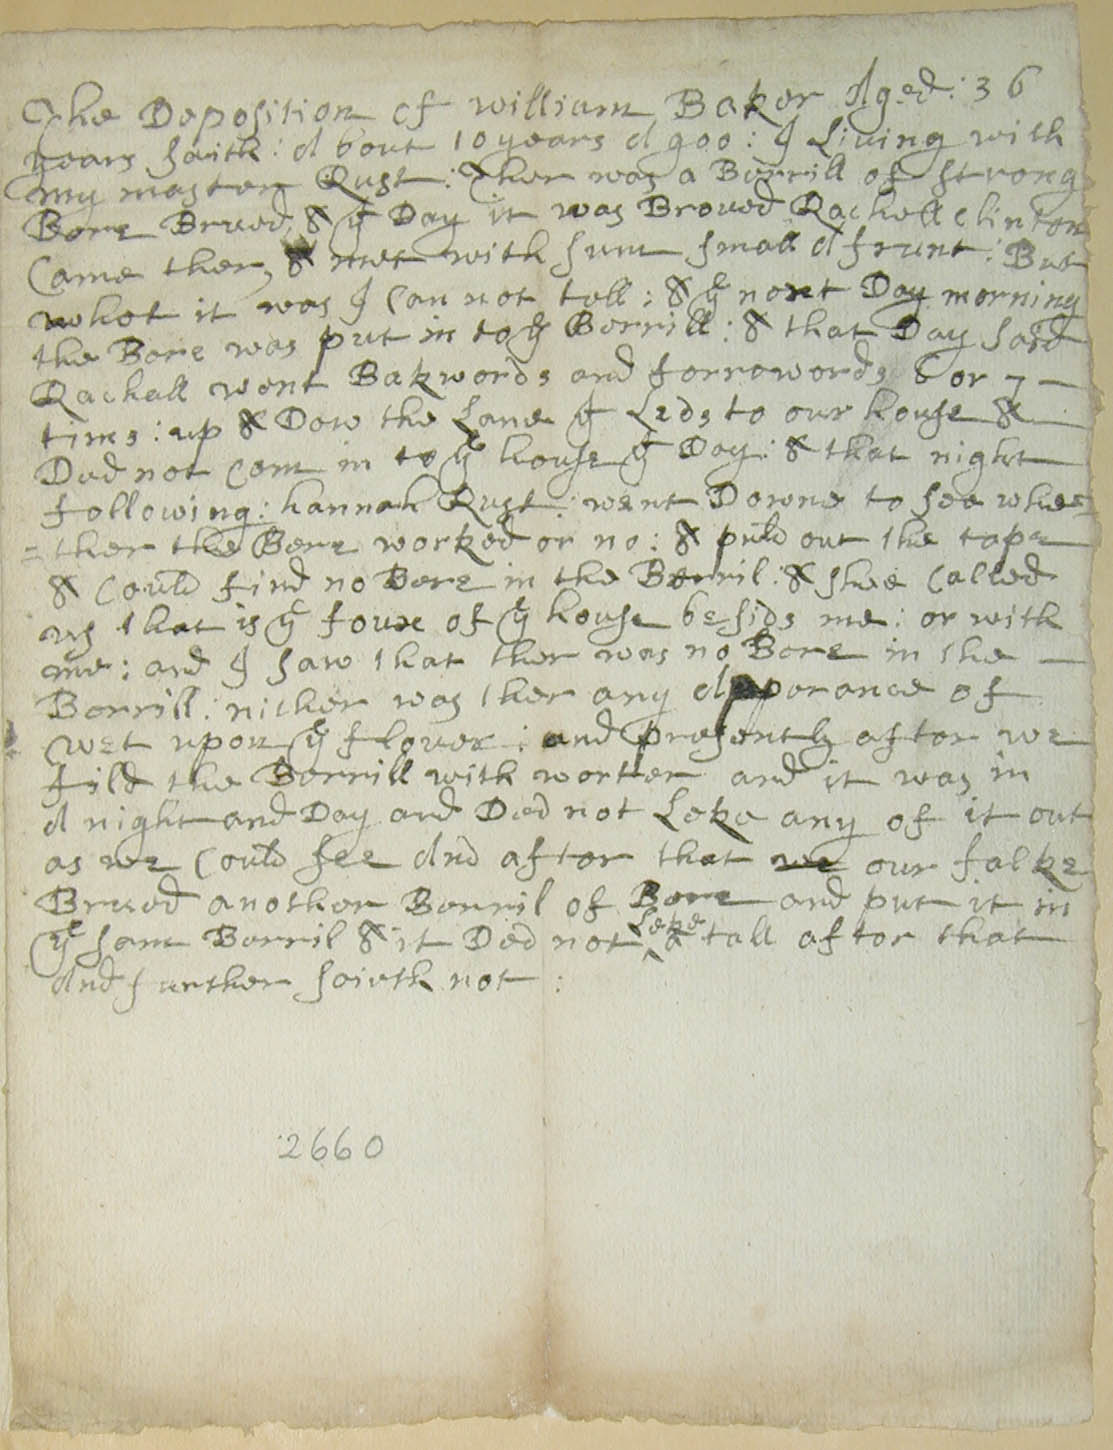 The Deposition of william Baker Aged: 36
years saith: About 10 years Agoo: I Living with
my master Rust: Ther was a Berrill of strong
Bere Brued, & yt Day it was Broued Rachell clinton
Came ther, & met with sum small Afrunt: But
whot it was I Can not tell: & ye next Day morning
the Bere was put in to ye Berrill: & that Day said
Rachall went Bakwords and forrowords 6 or 7
tims: up & Dow the Lane yt Leds to our house &
Ded not Com in to ye house yt Day: & that night
following: hannah Rust: went Downe to see whe=
=ther the Bere worked or no: & puld out the tape
& Could find no Bere in the Berril: & shee Called
us that is ye foure of ye house besids me: or with
me: and I saw that ther was no Bere in the
Berrill: nither was ther any Apperance of
wet upon ye flouer: and presently after we
fild the Berrill with worter and it was in
A night and Day and Ded not Leke any of it out
as we Could see And after that we our falke
Brued another Berril of Bere and put it in
ye sam Berril & it Ded not Leke a tall after that
And further saieth not:
2660